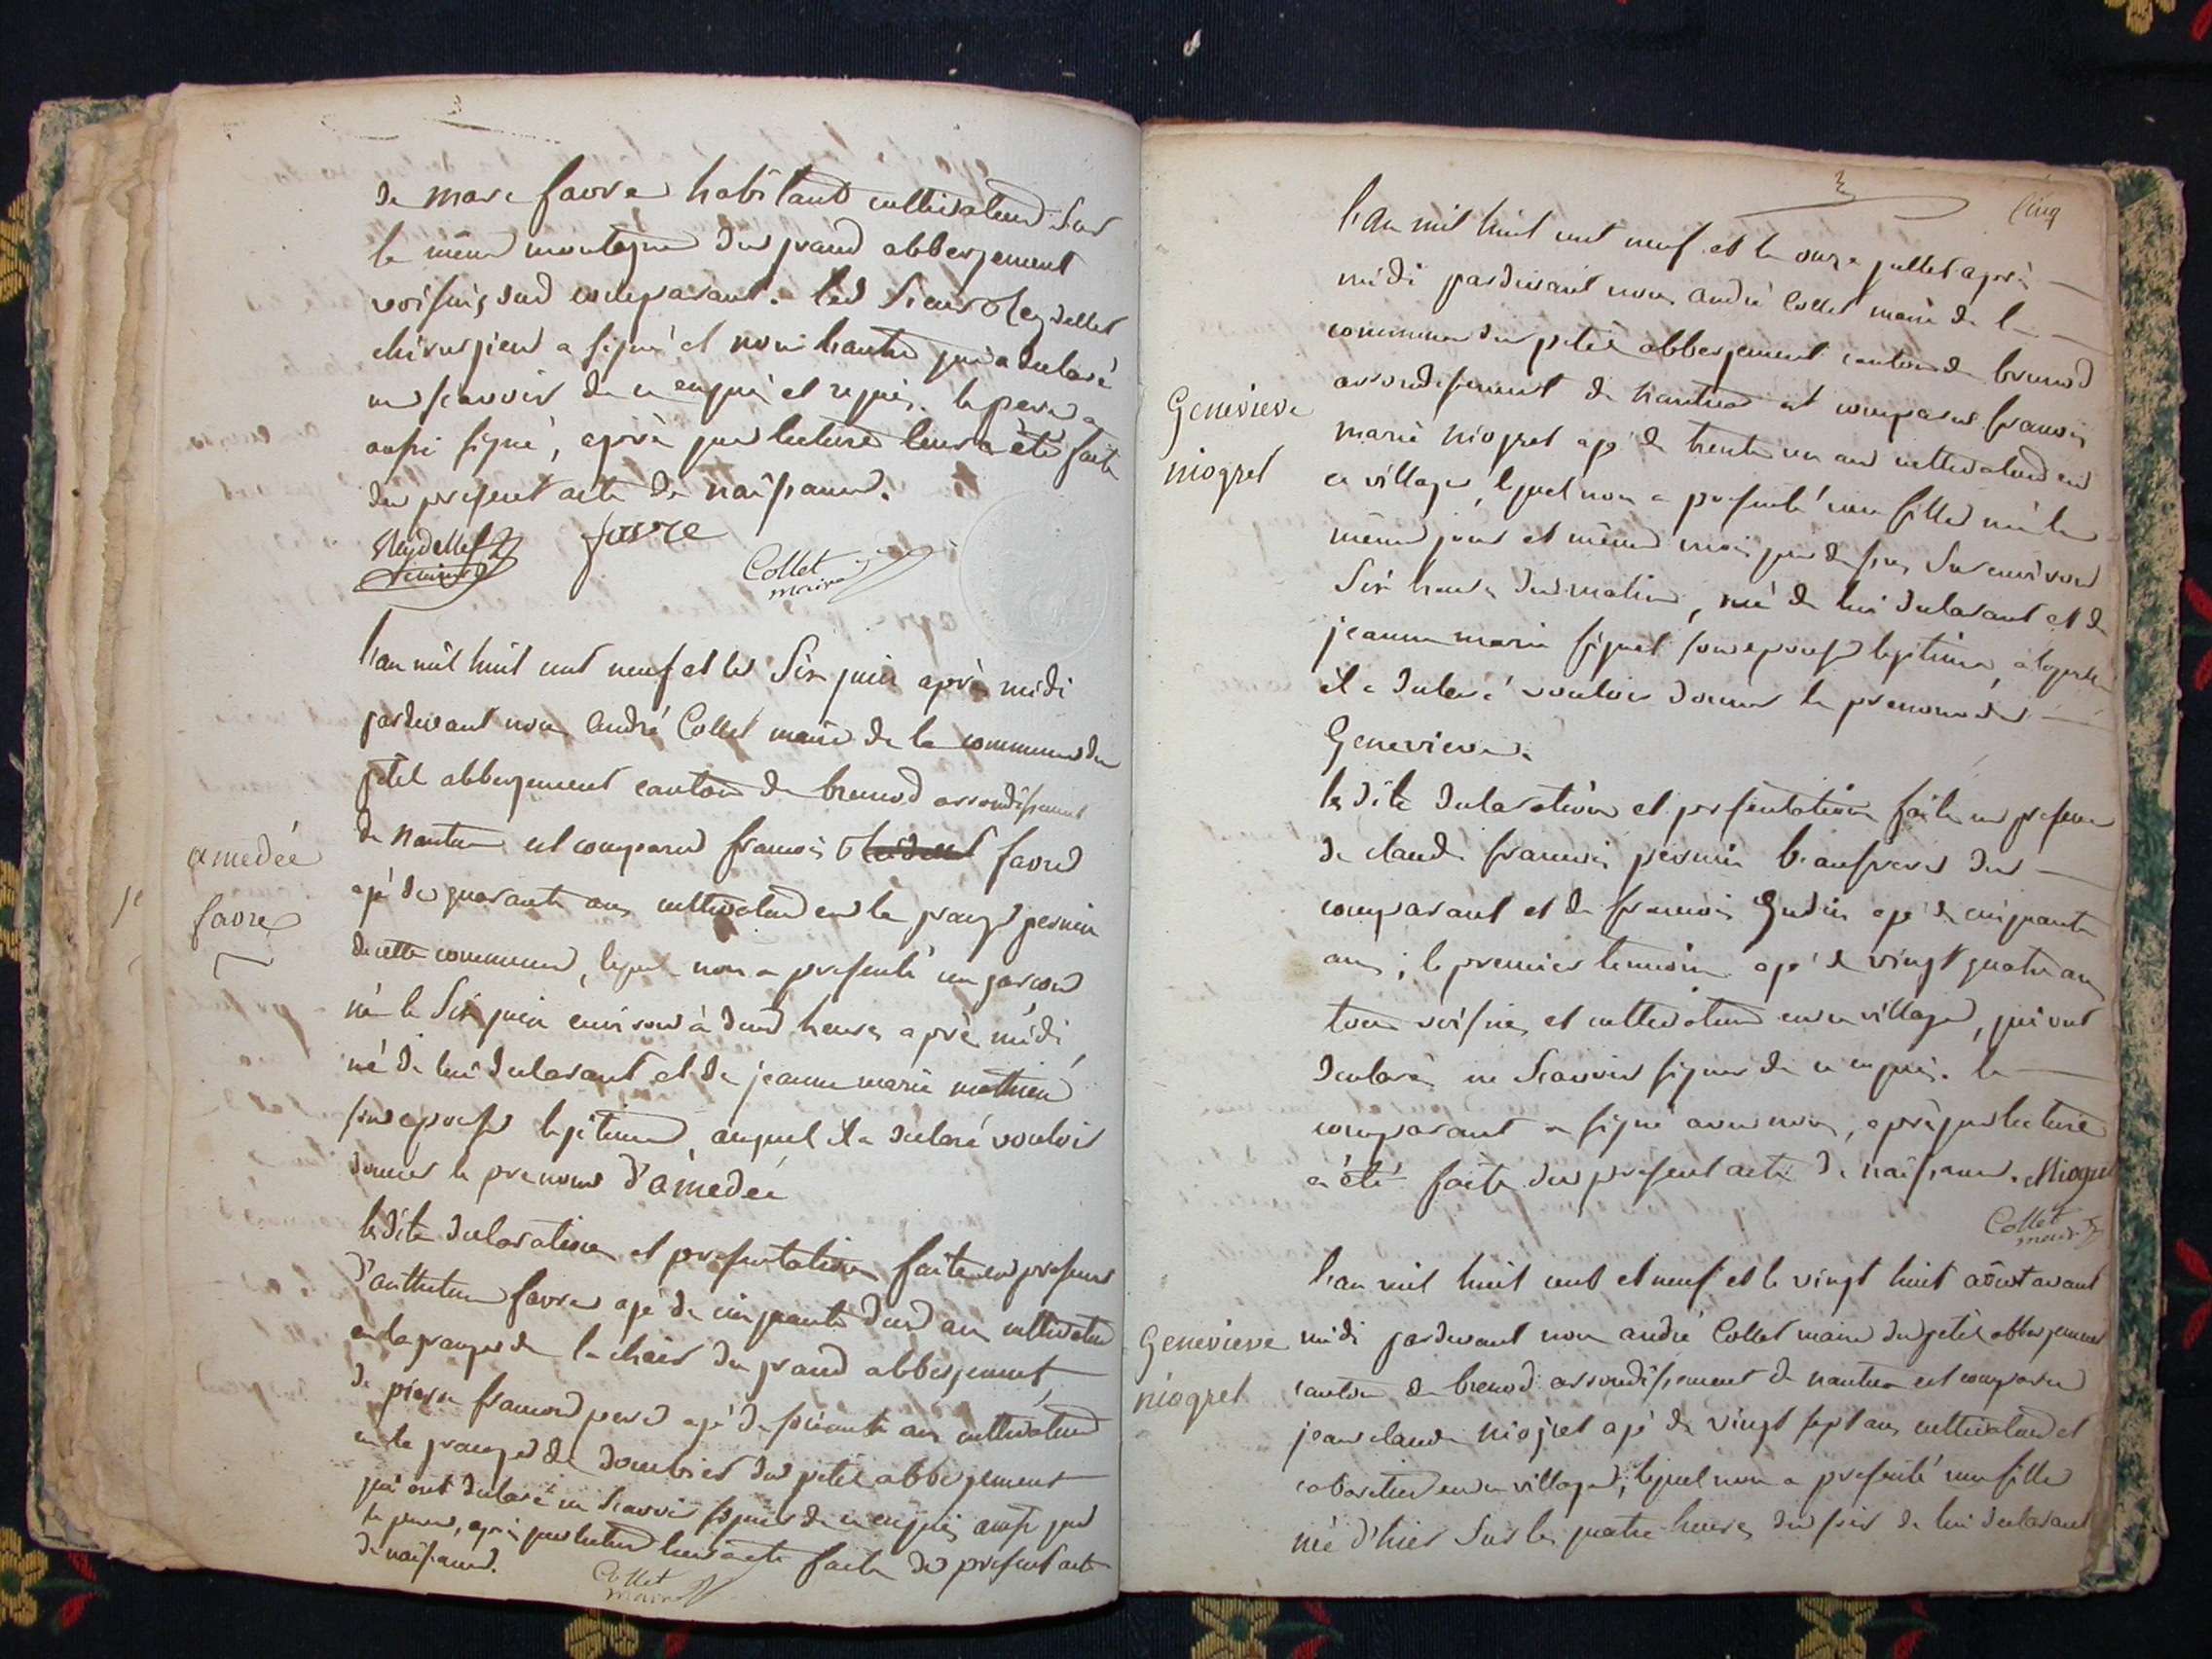 de marc favre habitant cultivateur sur
la même montagne du grand abbergement
voisins dud comparant. led sieur Reydellet
chirurgien a signé et non l'autre qui a declaré
ne scavoir de ce enquis et requis. le pere a
aussi signé, après que lecture leur a été faite
du present acte de naissance.
Reydellet favre
temoins Collet
maire
l'an mil huit cent neuf et le six juin après midi
pardevant nous André Collet maire de la commune du
petit abbergement canton de brenod arrondissement
de nantua est comparu francois favre
agé de quarante ans cultivateur en la grange pernin
de cette commune, lequel nous a presenté un garcon
né le six juin environ à deux heures après midi,
né de lui declarant et de jeanne marie mathieu
son epouse legitime, auquel il a declaré vouloir
donner le prenoms d'amedeé
amedeé
favre
ladite declaration et presentation faite en presence
d'anthelme favre agé de cinquante deux ans cultivateur
en la grange de la chair du grand abbergement,
de pierre francois perrin agé de soixante ans cultivateur
en la grange de du petit abbergement
qui ont declaré ne scavoir signer de ce enquis ainsi que
le pere, après que lecture leur a été faite du present acte
de naissance.
Collet
maire
Cinq
l'an mil huit cent neuf et le onze juillet après
midi pardevant nous andré Collet maire de la
commune du petit abbergement canton de brenod
arrondissement de nantua est comparu francois
marie niogret agé de trente un ans cultivateur en
ce village, lequel nous a presenté une fille née le
même jour et même mois que dessus sur environ
six heures du matin, née de lui declarant et de
jeanne marie signet son epouse legitime, a laquelle
il a declaré vouloir donner le prenoms de
Genevieve.
Genevieve
niogret
la dite declaration et presentation faite en presence
de claude francois pernin beaufrere du
comparant et de francois Gudin agé de cinquante
ans; le premier temoin agé de vingt quatre ans
tous voisins et cultivateurs en ce village, qui ont
declaré ne scavoir signer de ce enquis. le
comparant a signé avec nous, après que lecture
a été faite du present acte de naissance. Niogret
Collet
maire
l'an mil huit cent et neuf et le vingt huit aôust avant
midi pardevant nous andré Collet maire du petit abbergement
canton de brenod arrondissement de nantua est comparu
jean claude niogret agé de vingt sept ans cultivateur et
cabaretier en ce village; lequel nous a presenté une fille
née d'hier sur les quatre heures du soir de lui declarant
Genevieve
niogret